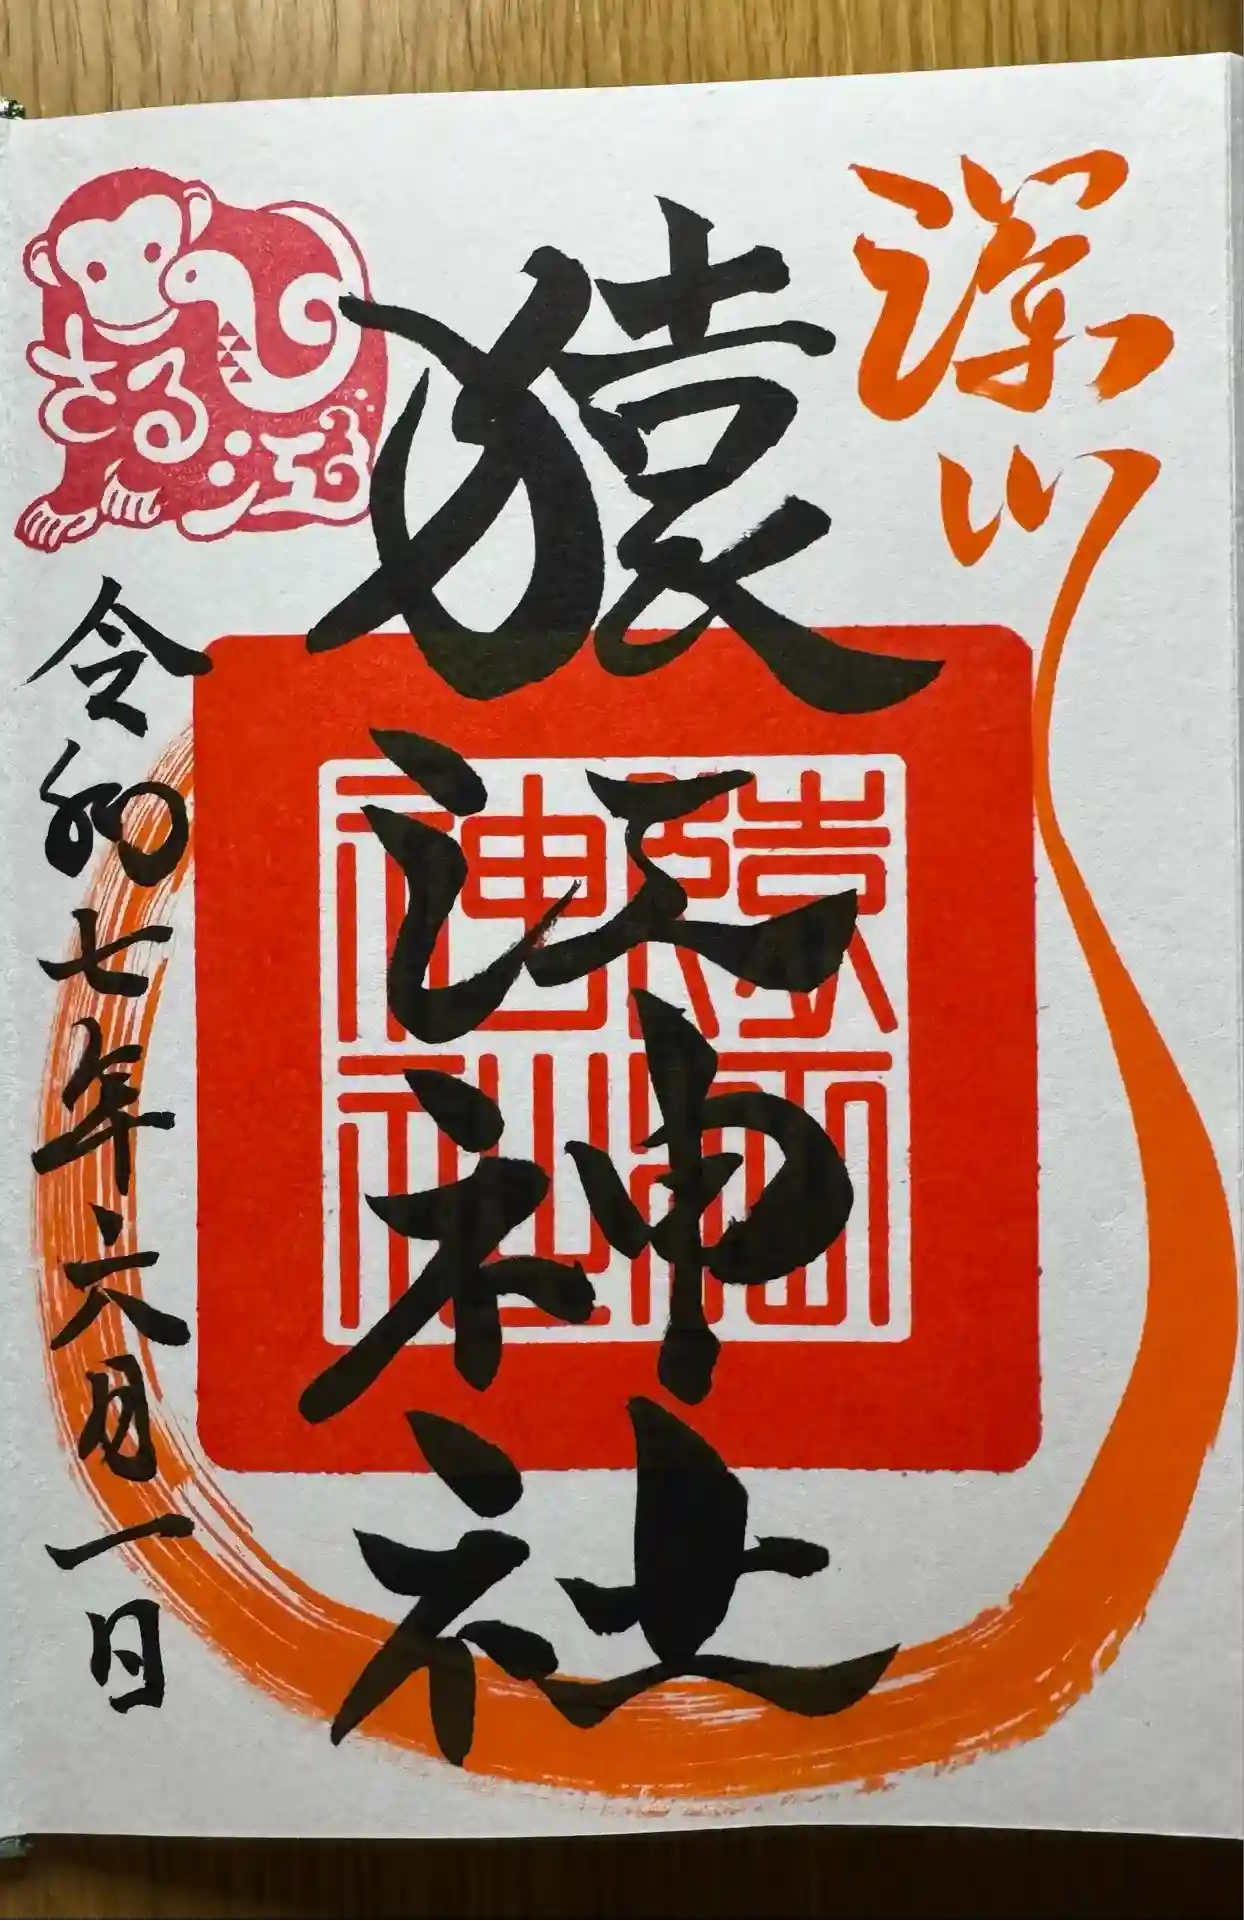 深川
猿江神社
令和七年六月一日
さる江